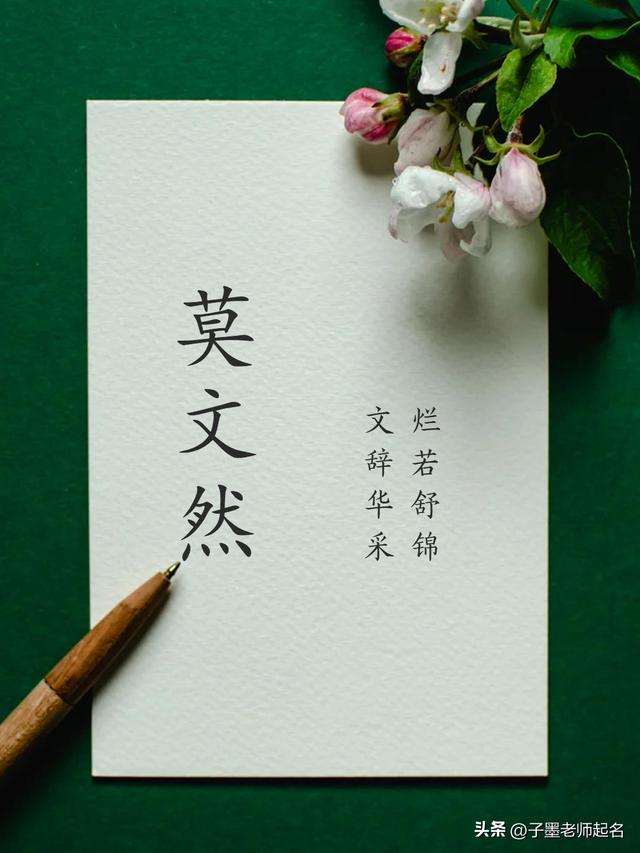 莫文然
烂若舒锦
文辞华采
头条 @子墨老师起名